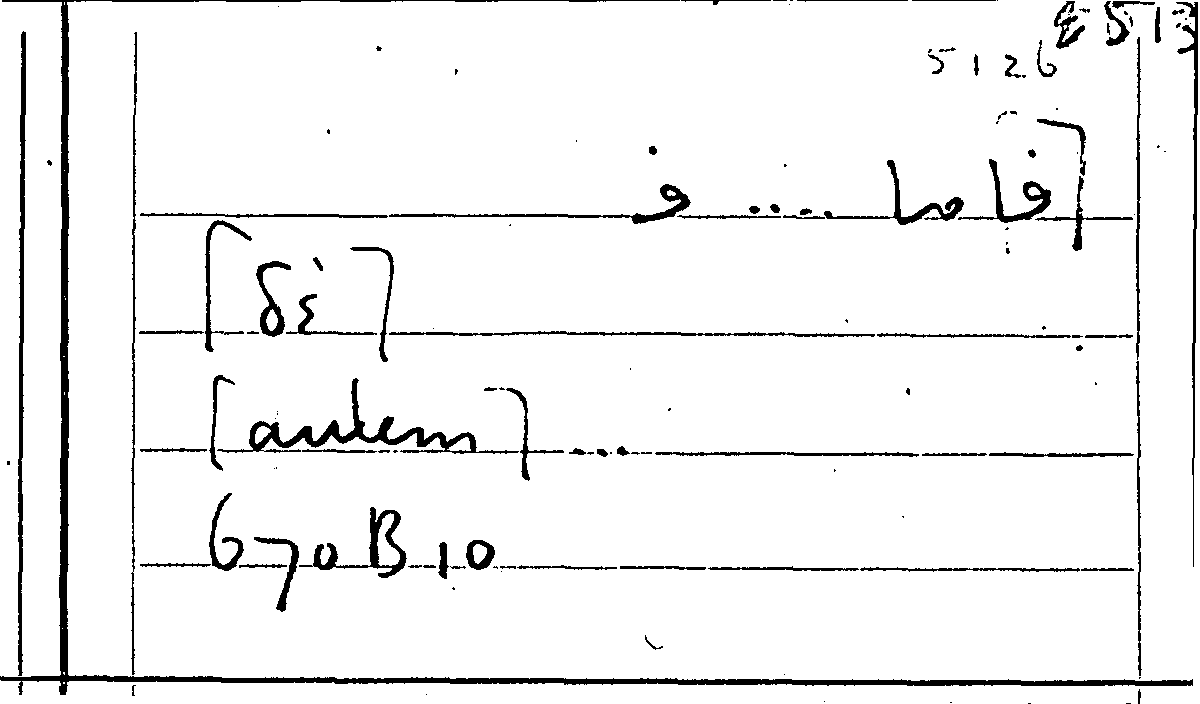 513
5126
[فاما .... و
[δὲ]
[autem] ...
670 B 10